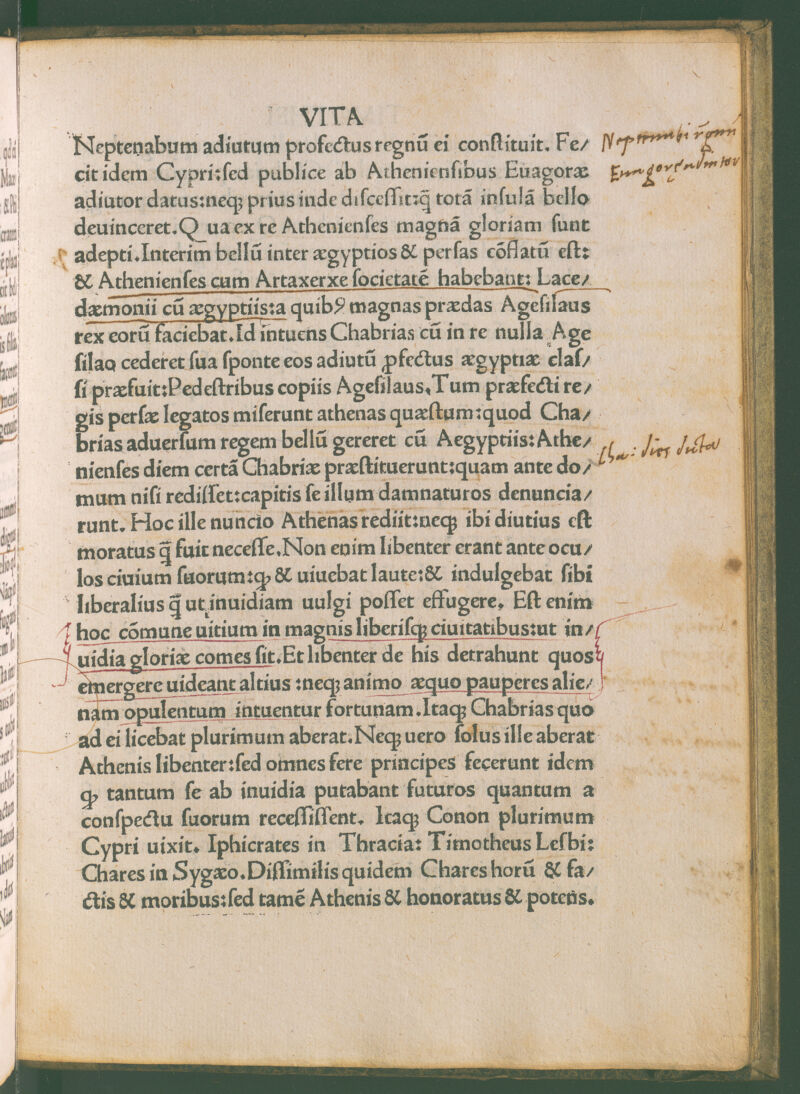 VITA
Neptenabum adiutum profectus regnũ ei conſtituit. Fe/
cit idem Cypri:ſed publice ab Athenienſibus Euagoræ
adiutor datus:neqꝫ prius inde diſceſſit:q̃ totã inſulã bello
deuinceret.Q ua ex re Athenienſes magnã gloriam ſunt
adepti.Interim bellũ inter ægyptios & perſas cõflatũ eſt:
& Athenienſes cum Artaxerxe ſocietatẽ habebant: Lace/
dæmonii cũ ægyptiis:a quibꝰ magnas prædas Ageſilaus
rex eorũ faciebat.Id intuens Chabrias cũ in re nulla Age
ſilao cederet ſua ſponte eos adiutũ ꝓfectus ægyptiæ claſ/
ſi præfuit:Pedeſtribus copiis Ageſilaus.Tum præfecti re/
gis perſæ legatos miſerunt athenas quæſtum:quod Cha/
brias aduerſum regem bellũ gereret cũ Aegyptiis:Athe/
nienſes diem certã Chabriæ præſtituerunt:quam ante do/
mum niſi rediſſet:capitis ſe illum damnaturos denuncia/
runt. Hoc ille nuncio Athenas rediit:neqꝫ ibi diutius eſt
moratus q̃ fuit neceſſe.Non enim libenter erant ante ocu/
los ciuium ſuorum:ꝙ & uiuebat laute:& indulgebat ſibi
liberalius q̃ ut inuidiam uulgi poſſet effugere. Eſt enim
hoc cõmune uitium in magnis liberiſqꝫ ciuitatibus:ut in/
uidia gloriæ comes ſit.Et libenter de his detrahunt quos
emergere uideant altius :neqꝫ animo æquo pauperes alie/
nam opulentum intuentur fortunam.Itaqꝫ Chabrias quo
ad ei licebat plurimum aberat.Neqꝫ uero ſolus ille aberat
Athenis libenter:ſed omnes fere principes fecerunt idem
ꝙ tantum ſe ab inuidia putabant futuros quantum a
conſpectu ſuorum receſſiſſent. Itaqꝫ Conon plurimum
Cypri uixit. Iphicrates in Thracia: Timotheus Leſbi:
Chares in Sygæo.Diſſimilis quidem Chares horũ & fa/
ctis & moribus:ſed tamẽ Athenis & honoratus & potens.